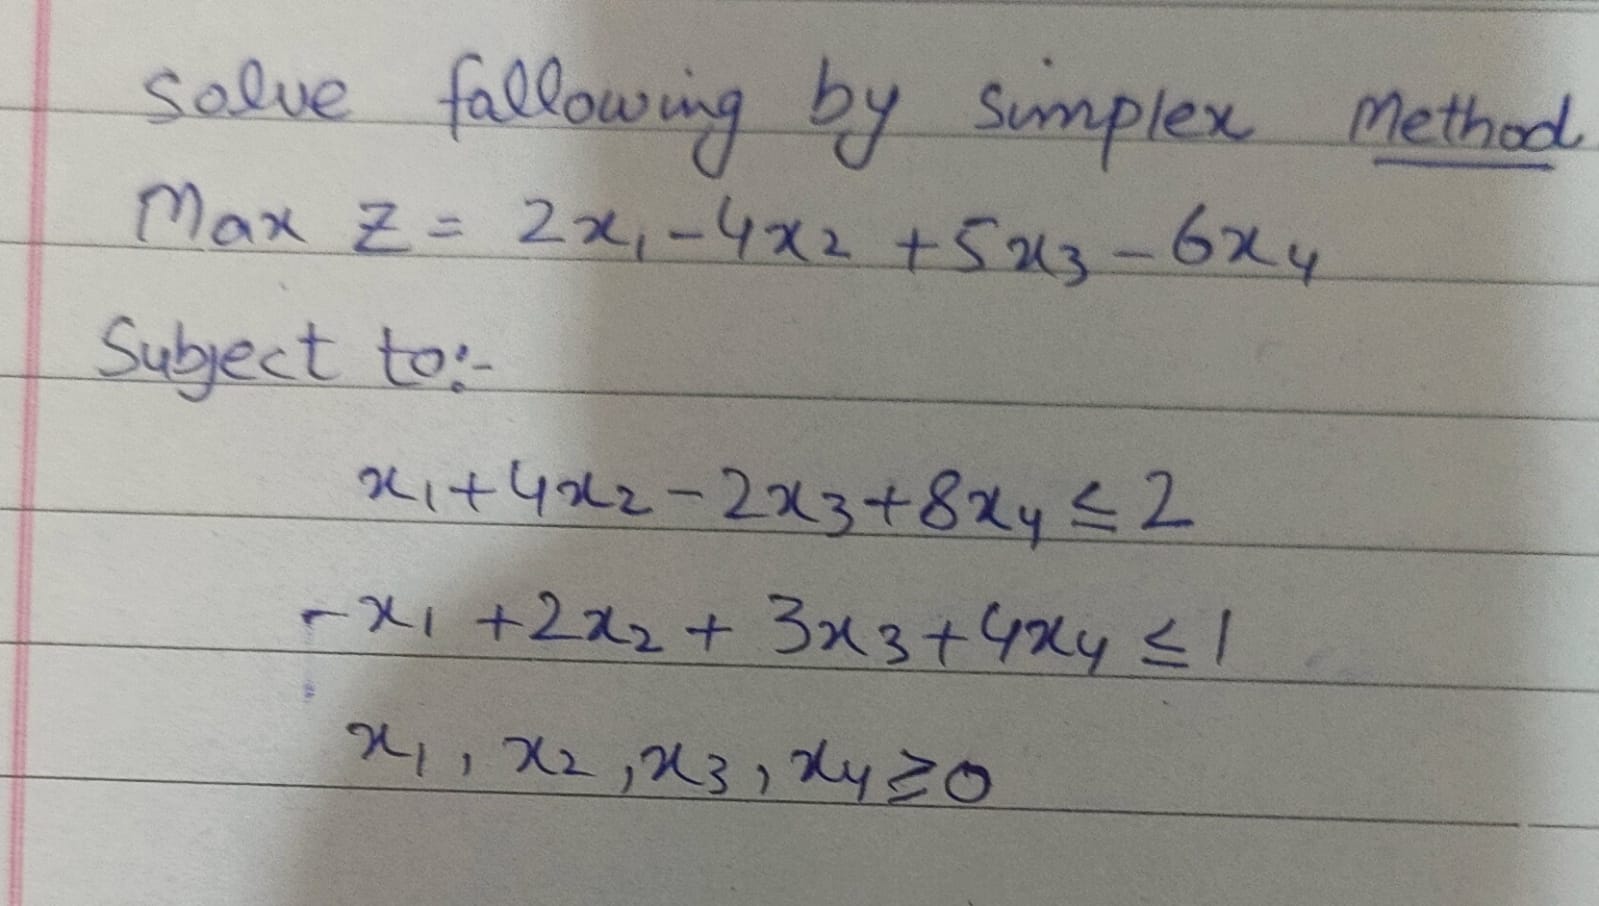 Solve fallowing by Simplex Method
Max Z = 2x₁ - 4x₂ + 5x₃ - 6x₄
Subject to:-
x₁ + 4x₂ - 2x₃ + 8x₄ ≤ 2
-x₁ + 2x₂ + 3x₃ + 4x₄ ≤ 1
x₁, x₂, x₃, x₄ ≥ 0